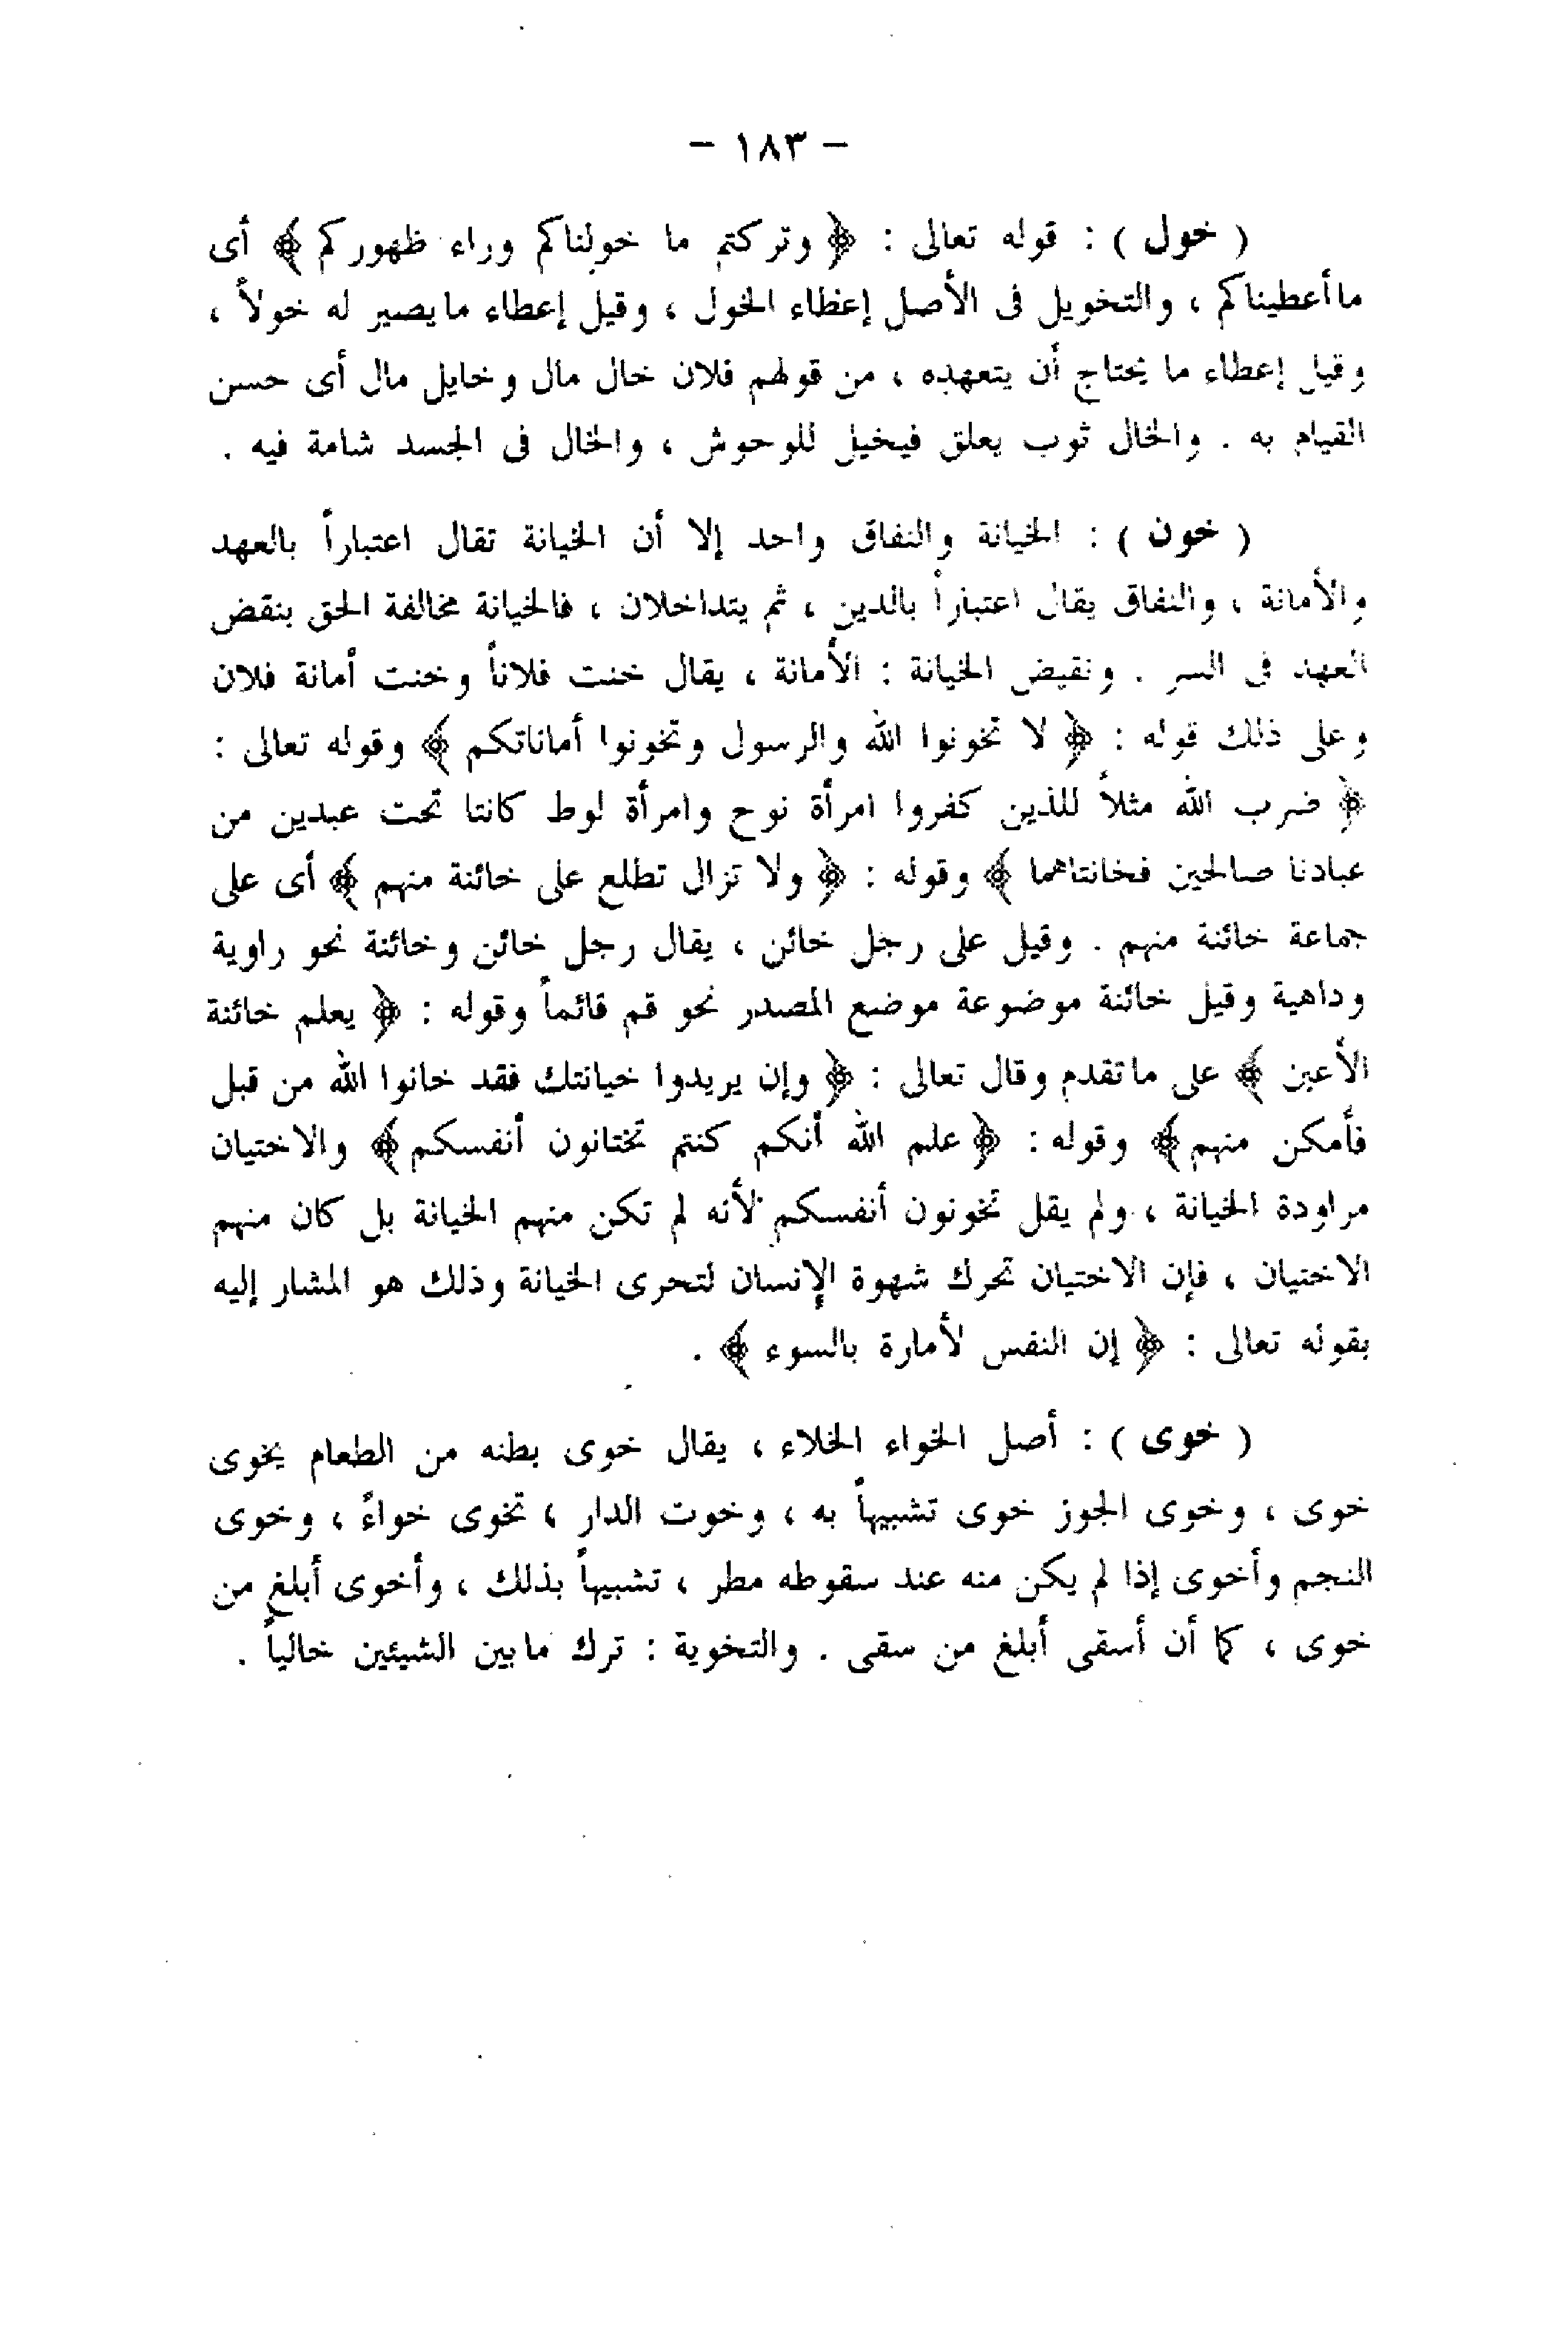 – ١٨٣ –
( خول ) : قوله تعالى : ﴿ وتركتم ما خولناكم وراء ظهوركم ﴾ أى
ما أعطيناكم ، والتخويل فى الأصل إعظاء الخول ، وقيل إعطاء ما يصير له خولاً ،
وقيل إعطاء ما يحتاج أن يتعهده ، من قولهم فلان خال مال وخايل مال أى حسن
القيام به . والخال ثوب يعلق فيخيل للوحوش ، والخال فى الجسد شامة فيه .
( خون ) : الخيانة والنفاق واحد إلا أن الخيانة تقال اعتباراً بالعهد
والأمانة ، والنفاق يقال اعتباراً بالدين ، ثم يتداخلان ، فالخيانة مخالفة الحق بنقض
العهد فى السر . ونقيض الخيانة : الأمانة ، يقال خنت فلاناً وخنت أمانة فلان
وعلى ذلك قوله : ﴿ لا تخونوا الله والرسول وتخونوا أماناتكم ﴾ وقوله تعالى :
﴿ ضرب الله مثلاً للذين كفروا امرأة نوح وامرأة لوط كانتا تحت عبدين من
عبادنا صالحين فخانتاهما ﴾ وقوله : ﴿ ولا تزال تطلع على خائنة منهم ﴾ أى على
جماعة خائنة منهم . وقيل على رجل خائن ، يقال رجل خائن وخائنة نحو راوية
وداهية وقيل خائنة موضوعة موضع المصدر نحو قم قائماً وقوله : ﴿ يعلم خائنة
الأعين ﴾ على ما تقدم وقال تعالى : ﴿ وإن يريدوا خيانتك فقد خانوا الله من قبل
فأمكن منهم ﴾ وقوله : ﴿ علم الله أنكم كنتم تختانون أنفسكم ﴾ والاختيان
مراودة الخيانة ، ولم يقل تخونون أنفسكم لأنه لم تكن منهم الخيانة بل كان منهم
الاختيان ، فإن الاختيان تحرك شهوة الإنسان لتحرى الخيانة وذلك هو المشار إليه
بقوله تعالى : ﴿ إن النفس لأمارة بالسوء ﴾ .
( خوى ) : أصل الخواء الخلاء ، يقال خوى بطنه من الطعام يخوى
خوى ، وخوى الجوز خوى تشبيهاً به ، وخوت الدار ، تخوى خواءً ، وخوى
النجم وأخوى إذا لم يكن منه عند سقوطه مطر ، تشبيهاً بذلك ، وأخوى أبلغ من
خوى ، كما أن أسقى أبلغ من سقى . والتخوية : ترك ما بين الشيئين خالياً .